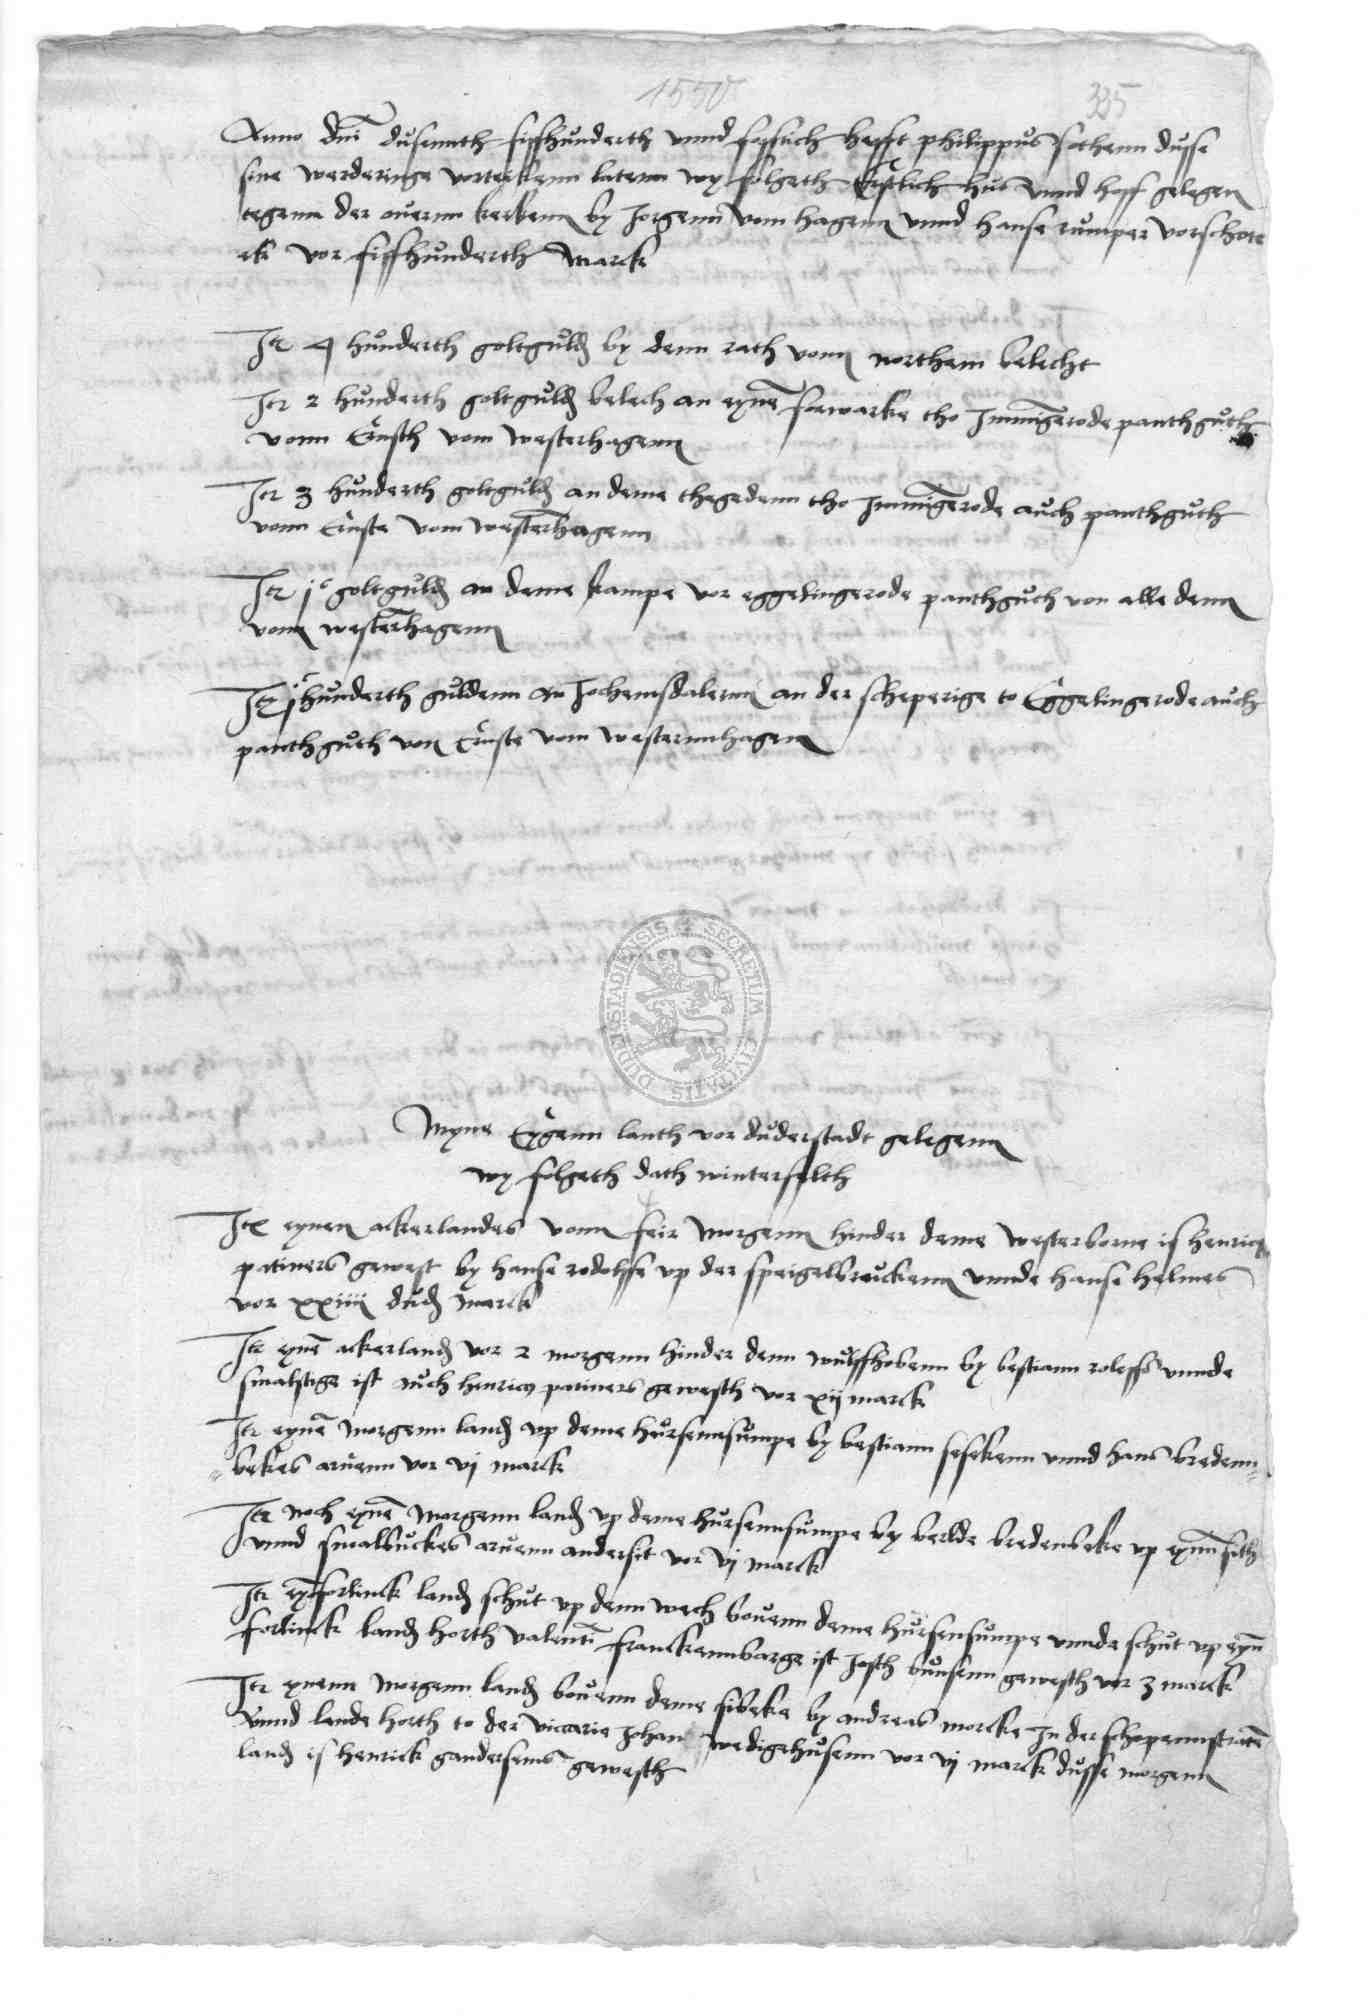 1550
335
Anno dnī dusennth fiffhunderth unnd fofftich hefft philippus sothenn dusse
sine werderinge vorteikenn latenn wy folgeth Erstlich hus unnd hoff gelegen
tegenn der ouernn kerkenn by Jorgenn vom hagenn unnd Hanse rumper vorschote
vor fiffhunderth Marck
Itē 4 hunderth goltguld by denn rath vonn northeim belecht
Itē 2 hunderth goltguld belech an eynē forwarke tho Immīgerode panthguth
vonn Ernsth vom westerhagenn
Itē 3 hunderth goltguld an deme thegedenn tho Immīgerode auch panthguth
vonn Ernste vom westerhagenn
Itē jᶜ goltguld an deme kampe vor eggelingerode panthguth von alle denn
vonn westerhagenn
Itē j hunderth guldenn an Jochemsdalernn an der scheperige to Eggelingerode auch
panthguth von Ernste vom westernnhagenn
SECRETUM CIVITATIS DUDERSTADIENSIS
Myne Eygenn lanth vor duderstadt gelegenn
wy folgeth dath winterfelth
Itē eynen ackerlandes vonn feir Morgenn hinder deme westerborne is henricy
patiners gewest by hanse rodolffe up der speigelbruckenn unnde hanse helmes
vor xxiiii dud Marck
Itē eynē ackerland vor 2 morgenn hinder denn wulffhobenn by bestiann roleffs unnde
ist auch henricy patiners gewesth vor xij marck
Itē eynē Morgenn land up deme hursennsumpe by bestiann sesekenn unnd hans bredenn
bekes aruenn vor vj marck
Itē noch eynē Morgenn land up deme hursennsumpe by berlde bredenbeke up eynn sith
unnd smalbuckes aruenn andersit vor vj marck
Itē eyn forlinck land schut up denn wech bouenn deme hursensumpe unnde schut up eyn
forlinck land horth valentī franckennbarge ist Josth bunsenn gewesth vor 3 marck
Itē eynenn Morgenn land bouenn deme sibeke by andreas morcke In der schopennstratē
unnd lande horth to der viccarie Johan wedigehusenn vor vj marck dusse morgenn
land is henrick gandersems gewesth